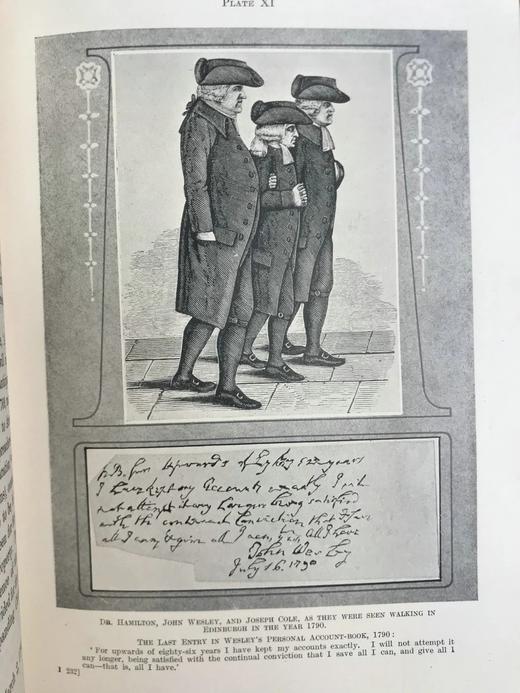 PLATE XI
N.B. For upwards of Eighty six years
I have kept my Accounts exactly I will
not attempt it any longer being satisfied
with the continual Conviction that I save
all I can, & give all I can, that is, all I have
John Wesley
July 16. 1790
DR. HAMILTON, JOHN WESLEY, AND JOSEPH COLE, AS THEY WERE SEEN WALKING IN
EDINBURGH IN THE YEAR 1790.
THE LAST ENTRY IN WESLEY'S PERSONAL ACCOUNT-BOOK, 1790:
' For upwards of eighty-six years I have kept my accounts exactly. I will not attempt it
any longer, being satisfied with the continual conviction that I save all I can, and give all I
can—that is, all I have.'
I 232]